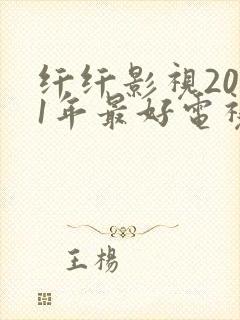 纤纤影視20
1年最好電視
王楊